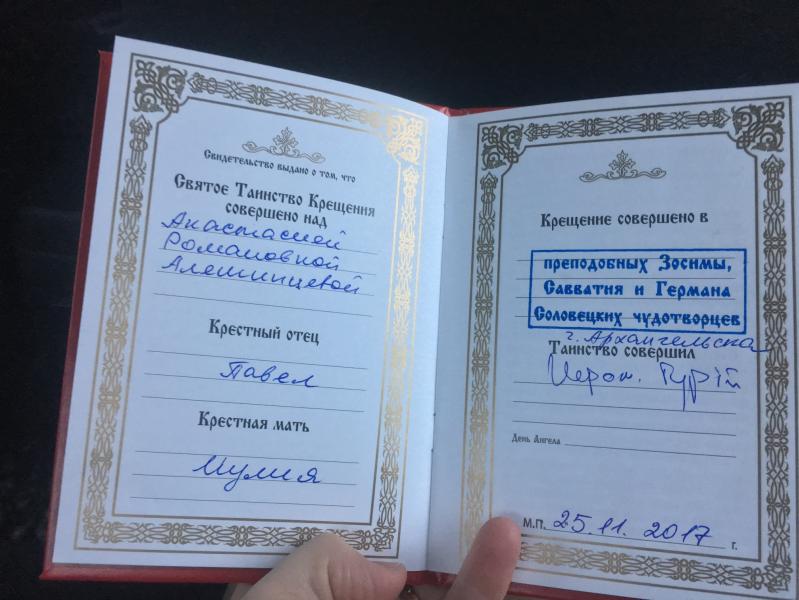 Свидетельство выдано о том, что
Святое Таинство Крещения
совершено над
Анастасией
Романовной
Алешинцевой
Крестный отец
Павел
Крестная мать
Иулия
Крещение совершено в
преподобных Зосимы,
Савватия и Германа
Соловецких чудотворцев
г. Архангельска
Таинство совершил
Иером. Гурій
День Ангела
М.П. 25.11.2017 г.